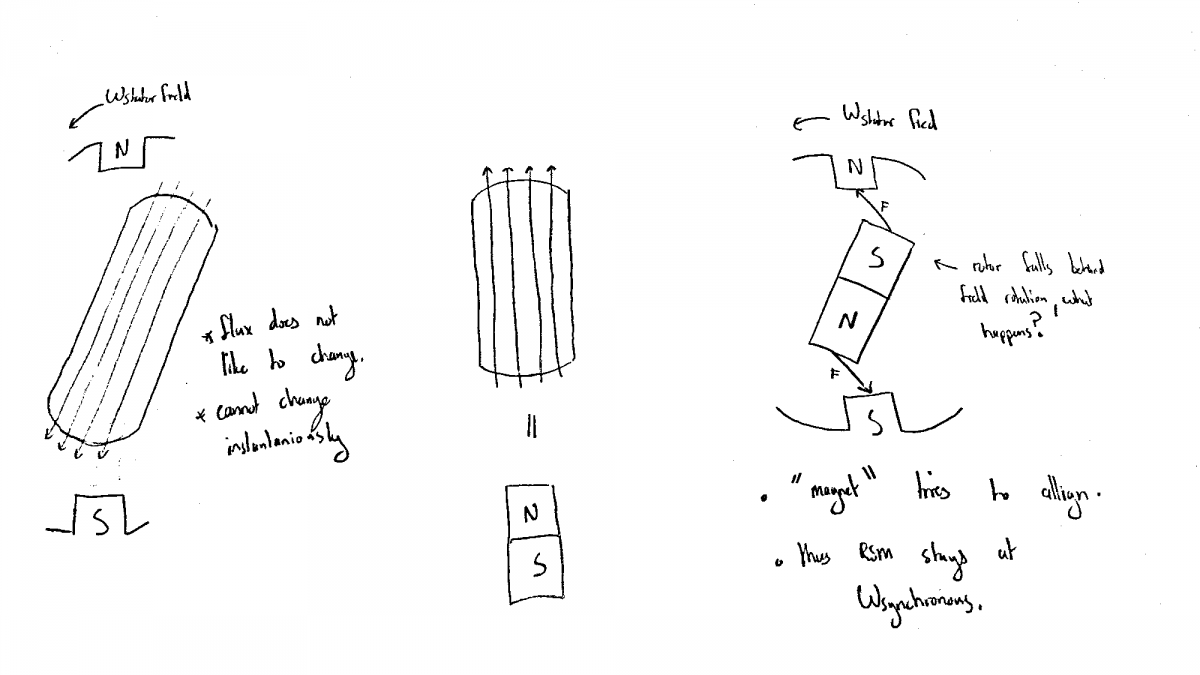 Wstator field
N
* flux does not
like to change.
* cannot change
instantaniously
S
=
N
S
Wstator field
N
F
S
N
← rotor falls behind
field rotation, what
happens?
F
S
• "magnet" tries to allign.
• thus RSM stays at
Wsynchronous.